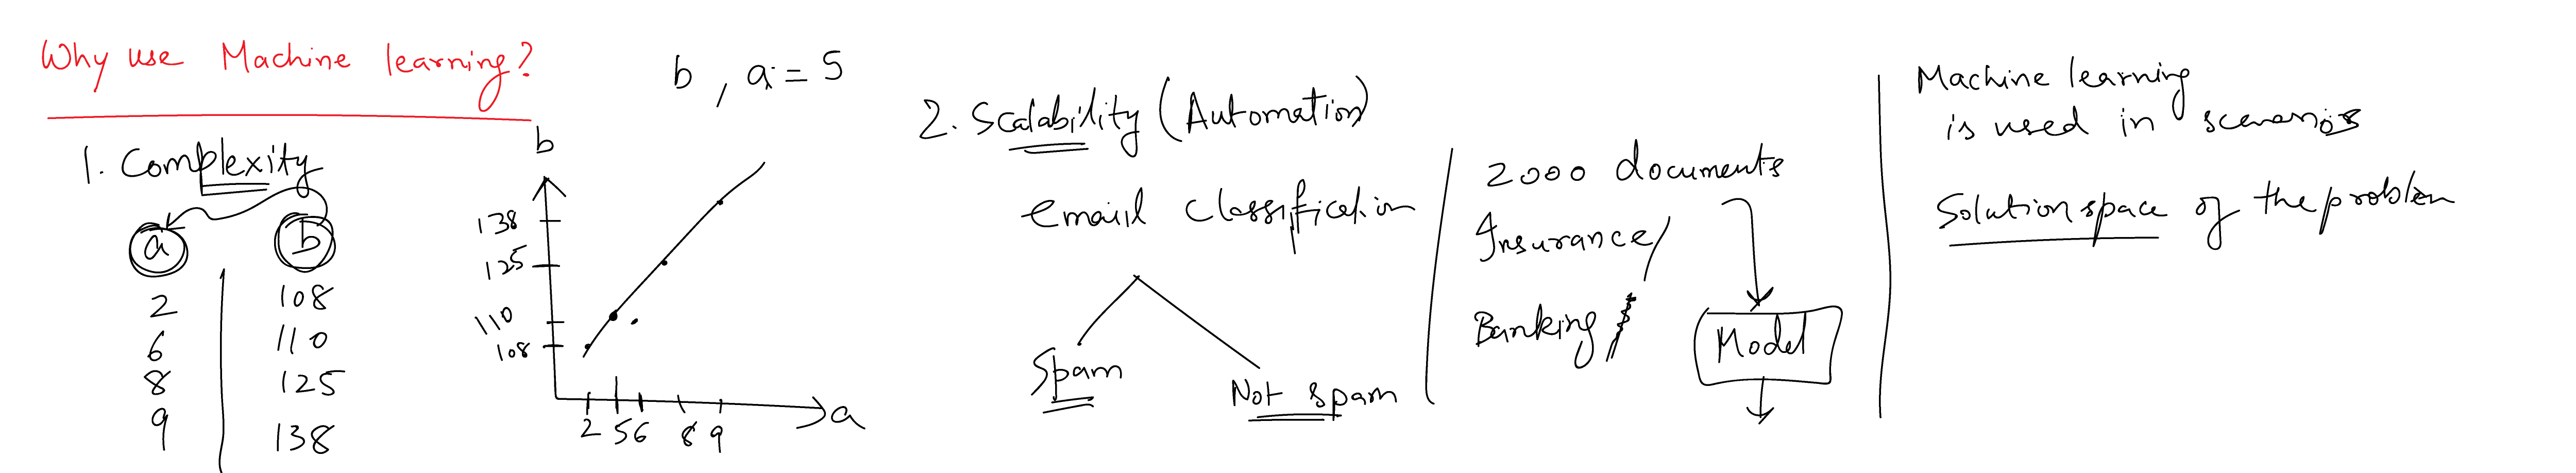 Why use Machine learning?
1. Complexity
a b
2 108
6 110
8 125
9 138
b , a = 5
b
138
125
110
108
2 5 6 8 9
a
2. Scalability (Automation)
email classification
Spam
Not spam
2000 documents
Insurance/
Banking
Model
Machine learning
is used in scenarios
Solution space of the problem